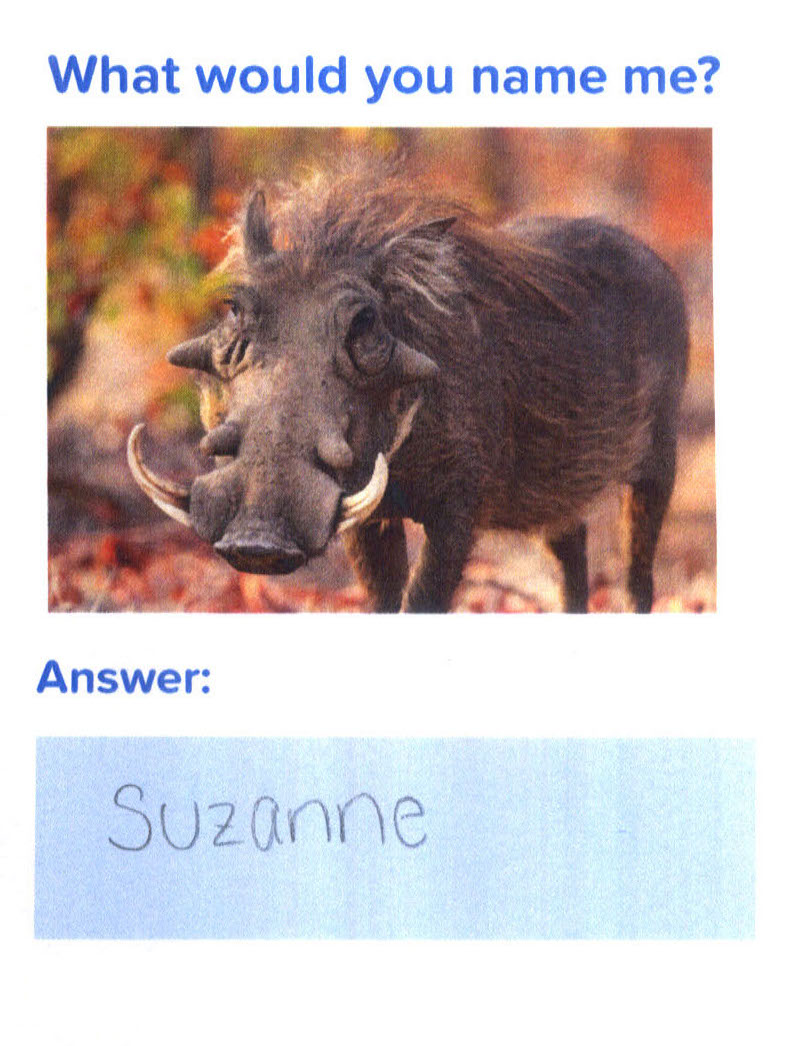 What would you name me?
Answer:
Suzanne